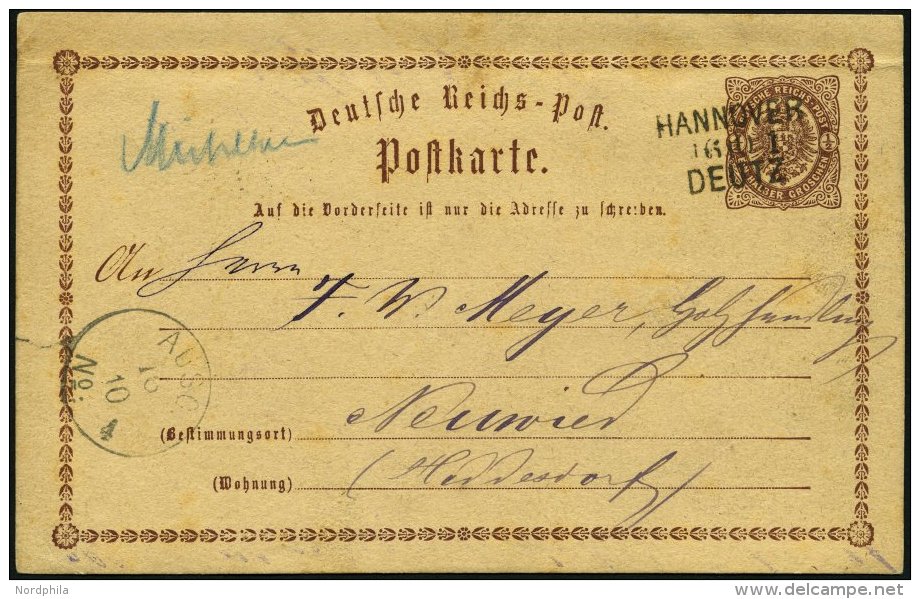 Deutsche Reichs-Post.
Postkarte.
Auf die Vorderseite ist nur die Adresse zu schreiben.
HANNOVER
DEUTZ
HALBER GROSCHEN
An Herrn
F. W. Meyer, Holzhandlung
Neuwied
(Bestimmungsort)
(Wohnung)
(Heddesdorf)
AUSG.
10
No.
Nordphila
delcampe.net